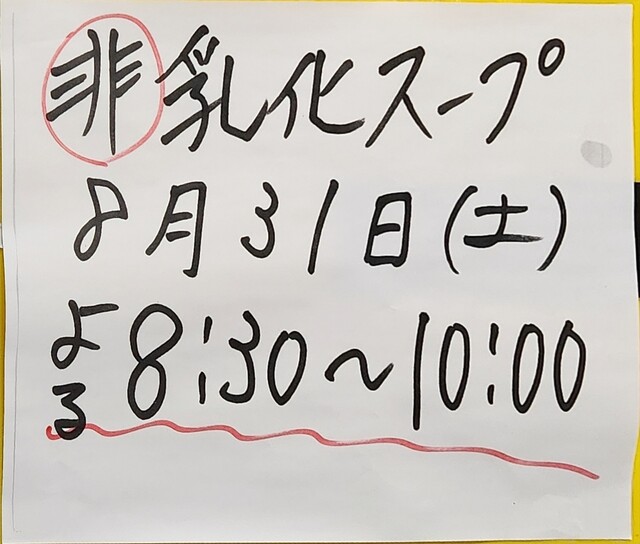 非乳化スープ
8月31日(土)
よる8:30〜10:00